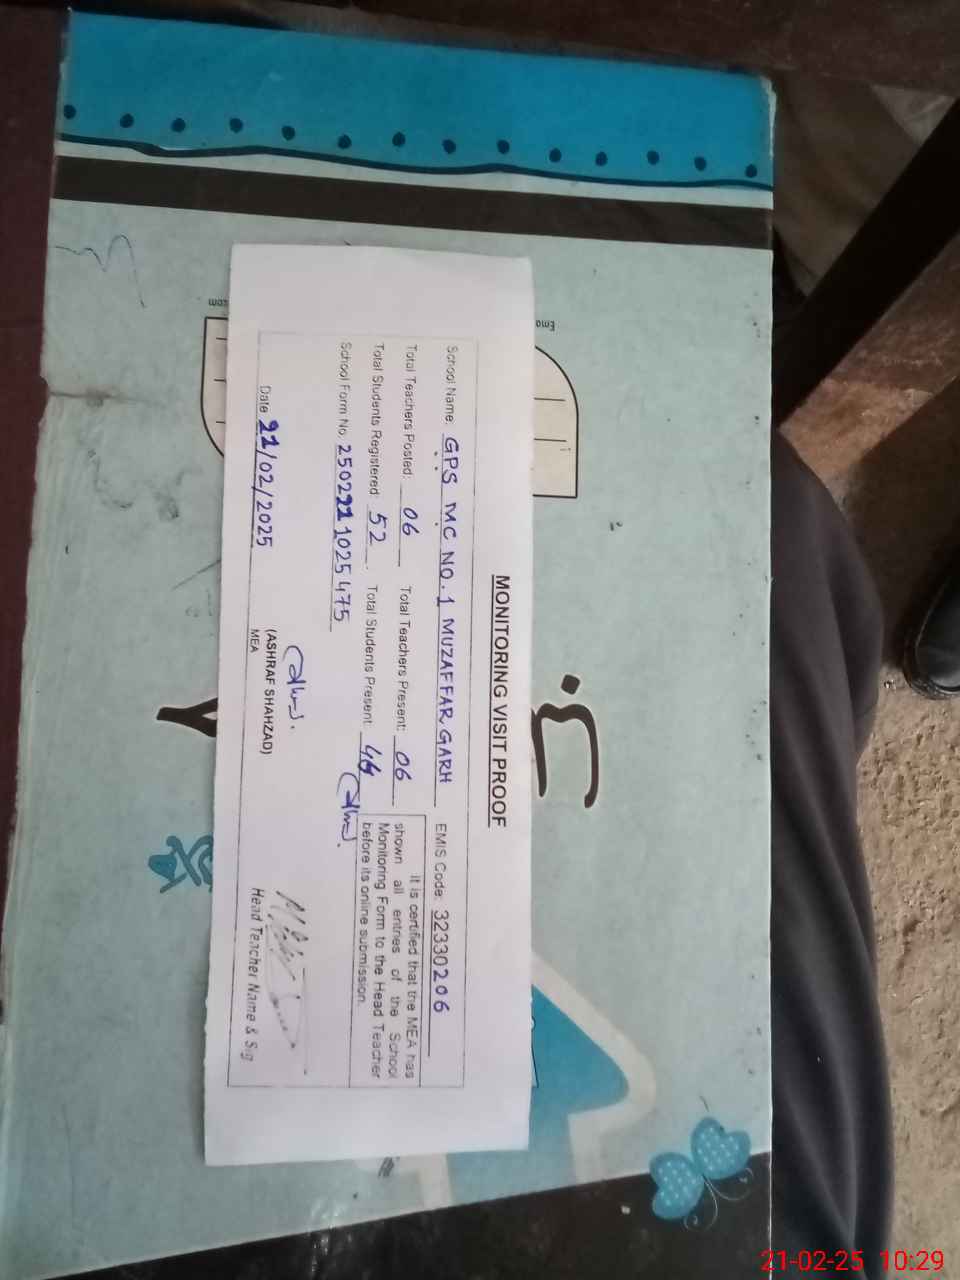 MONITORING VISIT PROOF
School Name: GPS MC NO.1 MUZAFFARGARH EMIS Code: 32330206
Total Teachers Posted: 06 Total Teachers Present: 06
Total Students Registered: 52 Total Students Present:
School Form No. 2502211025475
It is certified that the MEA has
shown all entries of the School
Monitoring Form to the Head Teacher
before its online submission.
Date 21/02/2025
(ASHRAF SHAHZAD)
MEA
Head Teacher Name & Sig
21-02-25 10:29